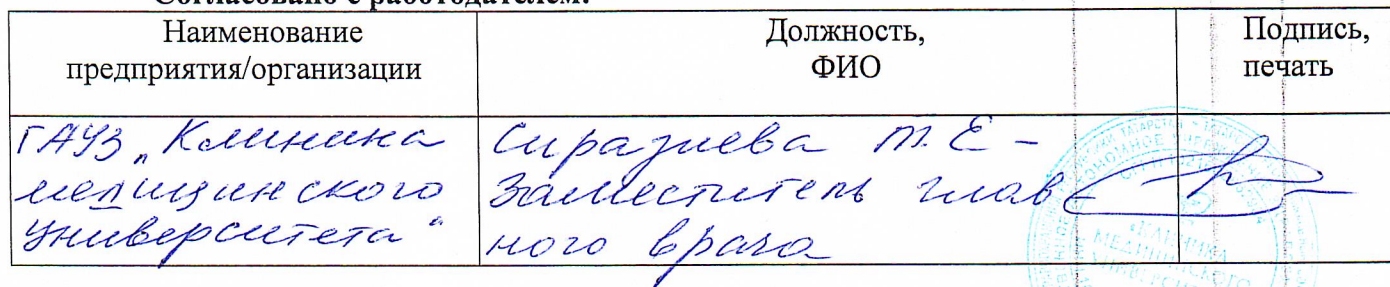 Согласовано с работодателем:
Наименование
предприятия/организации
Должность,
ФИО
Подпись,
печать
ГАУЗ „Клиника
медицинского
Университета“
Сиразиева Т.Е –
Заместитель глав
ного врача
КЛИНИКА
МЕДИЦИНСКОГО